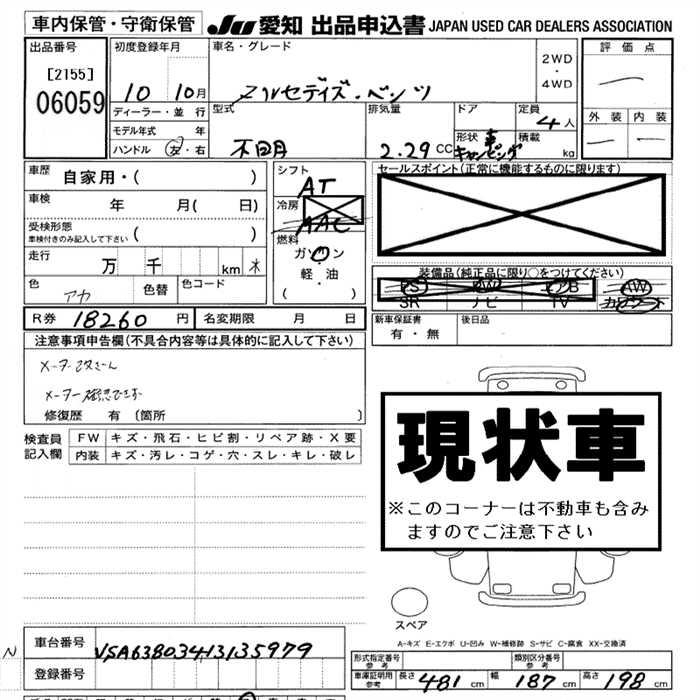 車内保管・守衛保管
JU 愛知 出品申込書 JAPAN USED CAR DEALERS ASSOCIATION
出品番号
[2155]
06059
初度登録年月
10 10月
ディーラー・並 行
モデル年式 年
ハンドル 左・右
車名・グレード
メルセデイズ・ベンツ
2WD
・
4WD
型式
不明
排気量
2.29 CC
ドア
形状 車
キャンピング
定員
4人
積載
kg
評価点
外装 内装
車歴
自家用・( )
車検 年 月( 日)
受検形態
車検付きのみ記入して下さい ( )
走行 万 千 km
色 アカ 色替 色コード
シフト
AT
冷房
AAC
燃料
ガソリン
軽・油
( )
セールスポイント(正常に機能するものに限ります)
装備品(純正品に限り○をつけてください)
PS PW AB AW
SR ナビ TV カワシート
R券 18260 円 名変期限 月 日
新車保証書
有・無
後日品
注意事項申告欄(不具合内容等は具体的に記入して下さい)
メーター改ざん
メーター
修復歴 有 〔箇所 〕
検査員
記入欄
FW キズ・飛石・ヒビ割・リペア跡・X要
内装 キズ・汚レ・コゲ・穴・スレ・キレ・破レ
現状車
※このコーナーは不動車も含み
ますのでご注意下さい
スペア
A-キズ E-エクボ U-凹み W-補修跡 S-サビ C-腐食 XX-交換済
N
車台番号 VSA63803413135979
登録番号
形式指定番号
参考
類別区分番号
参考
車庫証明用
参考
長さ 481 cm 幅 187 cm 高さ 198 cm